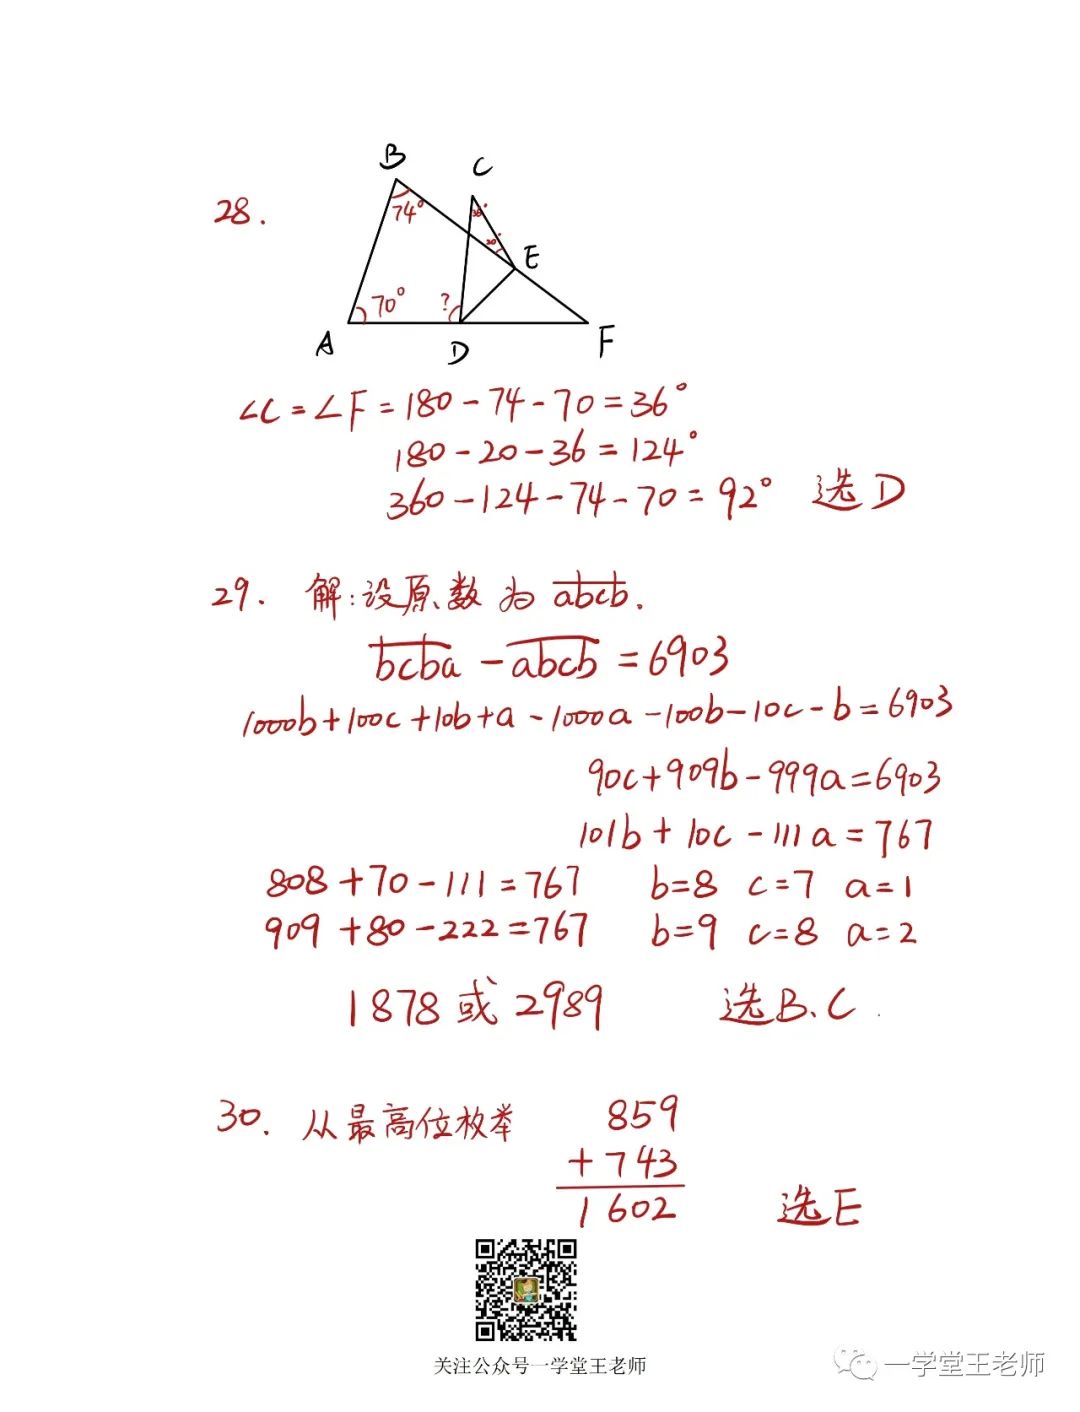 28.
B
C
74°
36°
20°
E
70°
?
A
D
F
∠C=∠F=180-74-70=36°
180-20-36=124°
360-124-74-70=92° 选D
29. 解:设原数为 a̅b̅c̅b̅.
b̅c̅b̅a̅ - a̅b̅c̅b̅ = 6903
1000b+100c+10b+a-1000a-100b-10c-b=6903
90c+909b-999a=6903
101b+10c-111a=767
808+70-111=767 b=8 c=7 a=1
909+80-222=767 b=9 c=8 a=2
1878或2989 选B、C.
30. 从最高位枚举
859
+743
1602
选E
关注公众号一学堂王老师
一学堂王老师